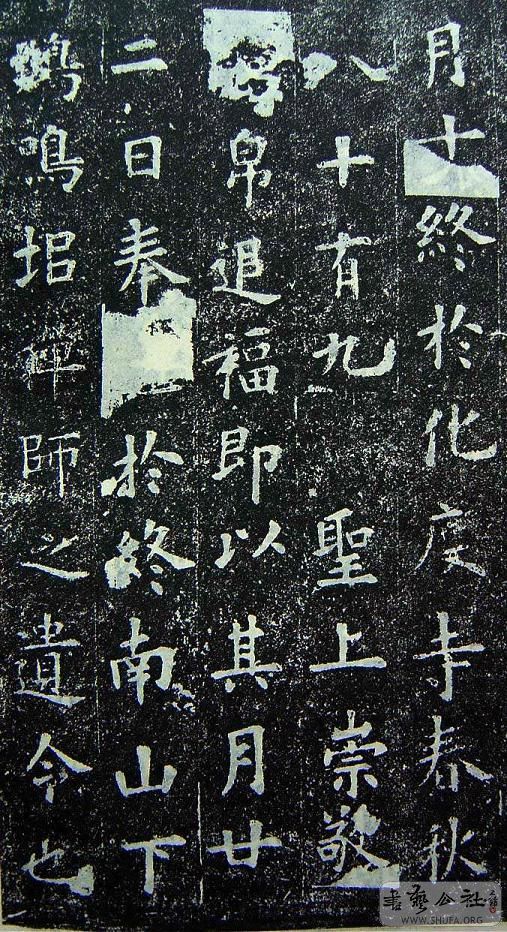 月十終於化度寺春秋
八十有九 聖上崇敬
帛追福即以其月廿
二日奉於終南山下
鵄鳴垖禪師之遺令也
書藝公社
WWW.SHUFA.ORG